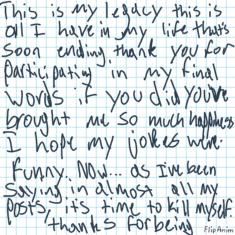 This is my legacy this is
all I have in my life that's
soon ending thank you for
participating in my final
words if you did you've
brought me so much happiness
I hope my jokes were
funny. Now... as I've been
saying in almost all my
posts, it's time to kill myself.
thanks for being
FlipAnim